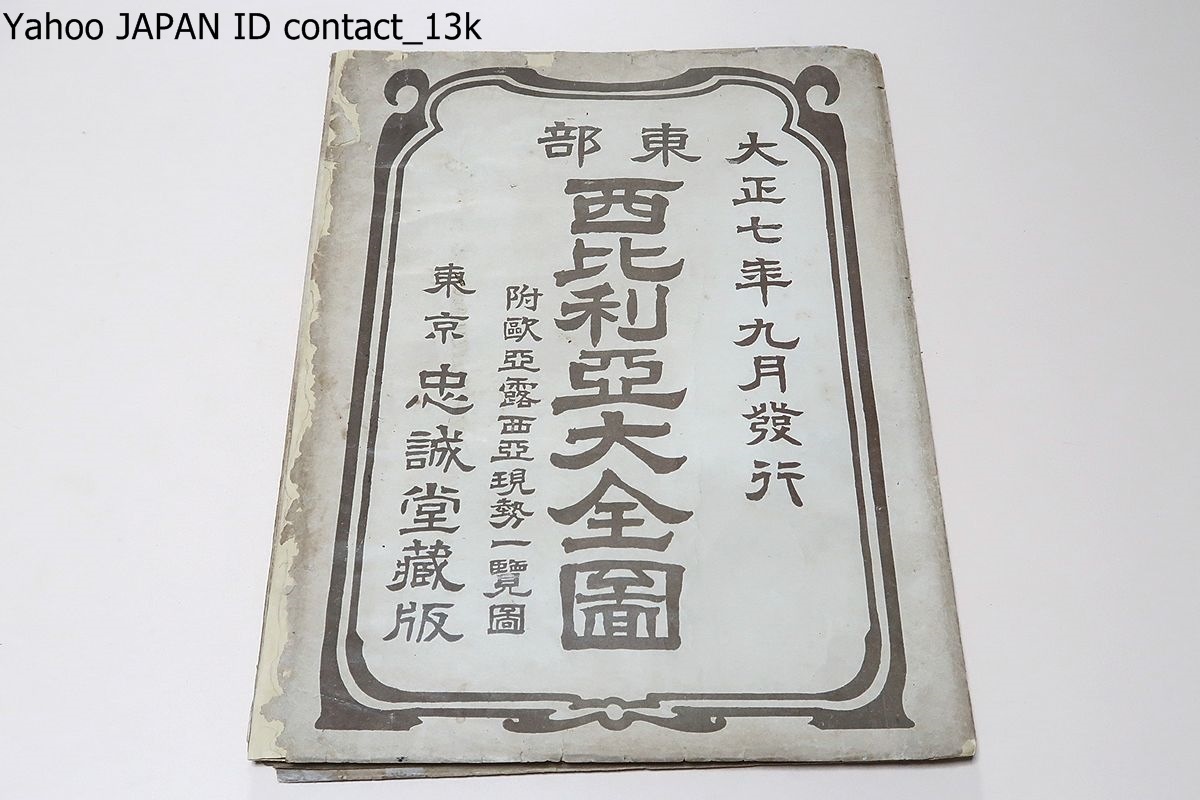 Yahoo JAPAN ID contact_13k
大正七年九月發行
東部
西比利亞大全圖
附歐亞露西亞現勢一覽圖
東京忠誠堂藏版